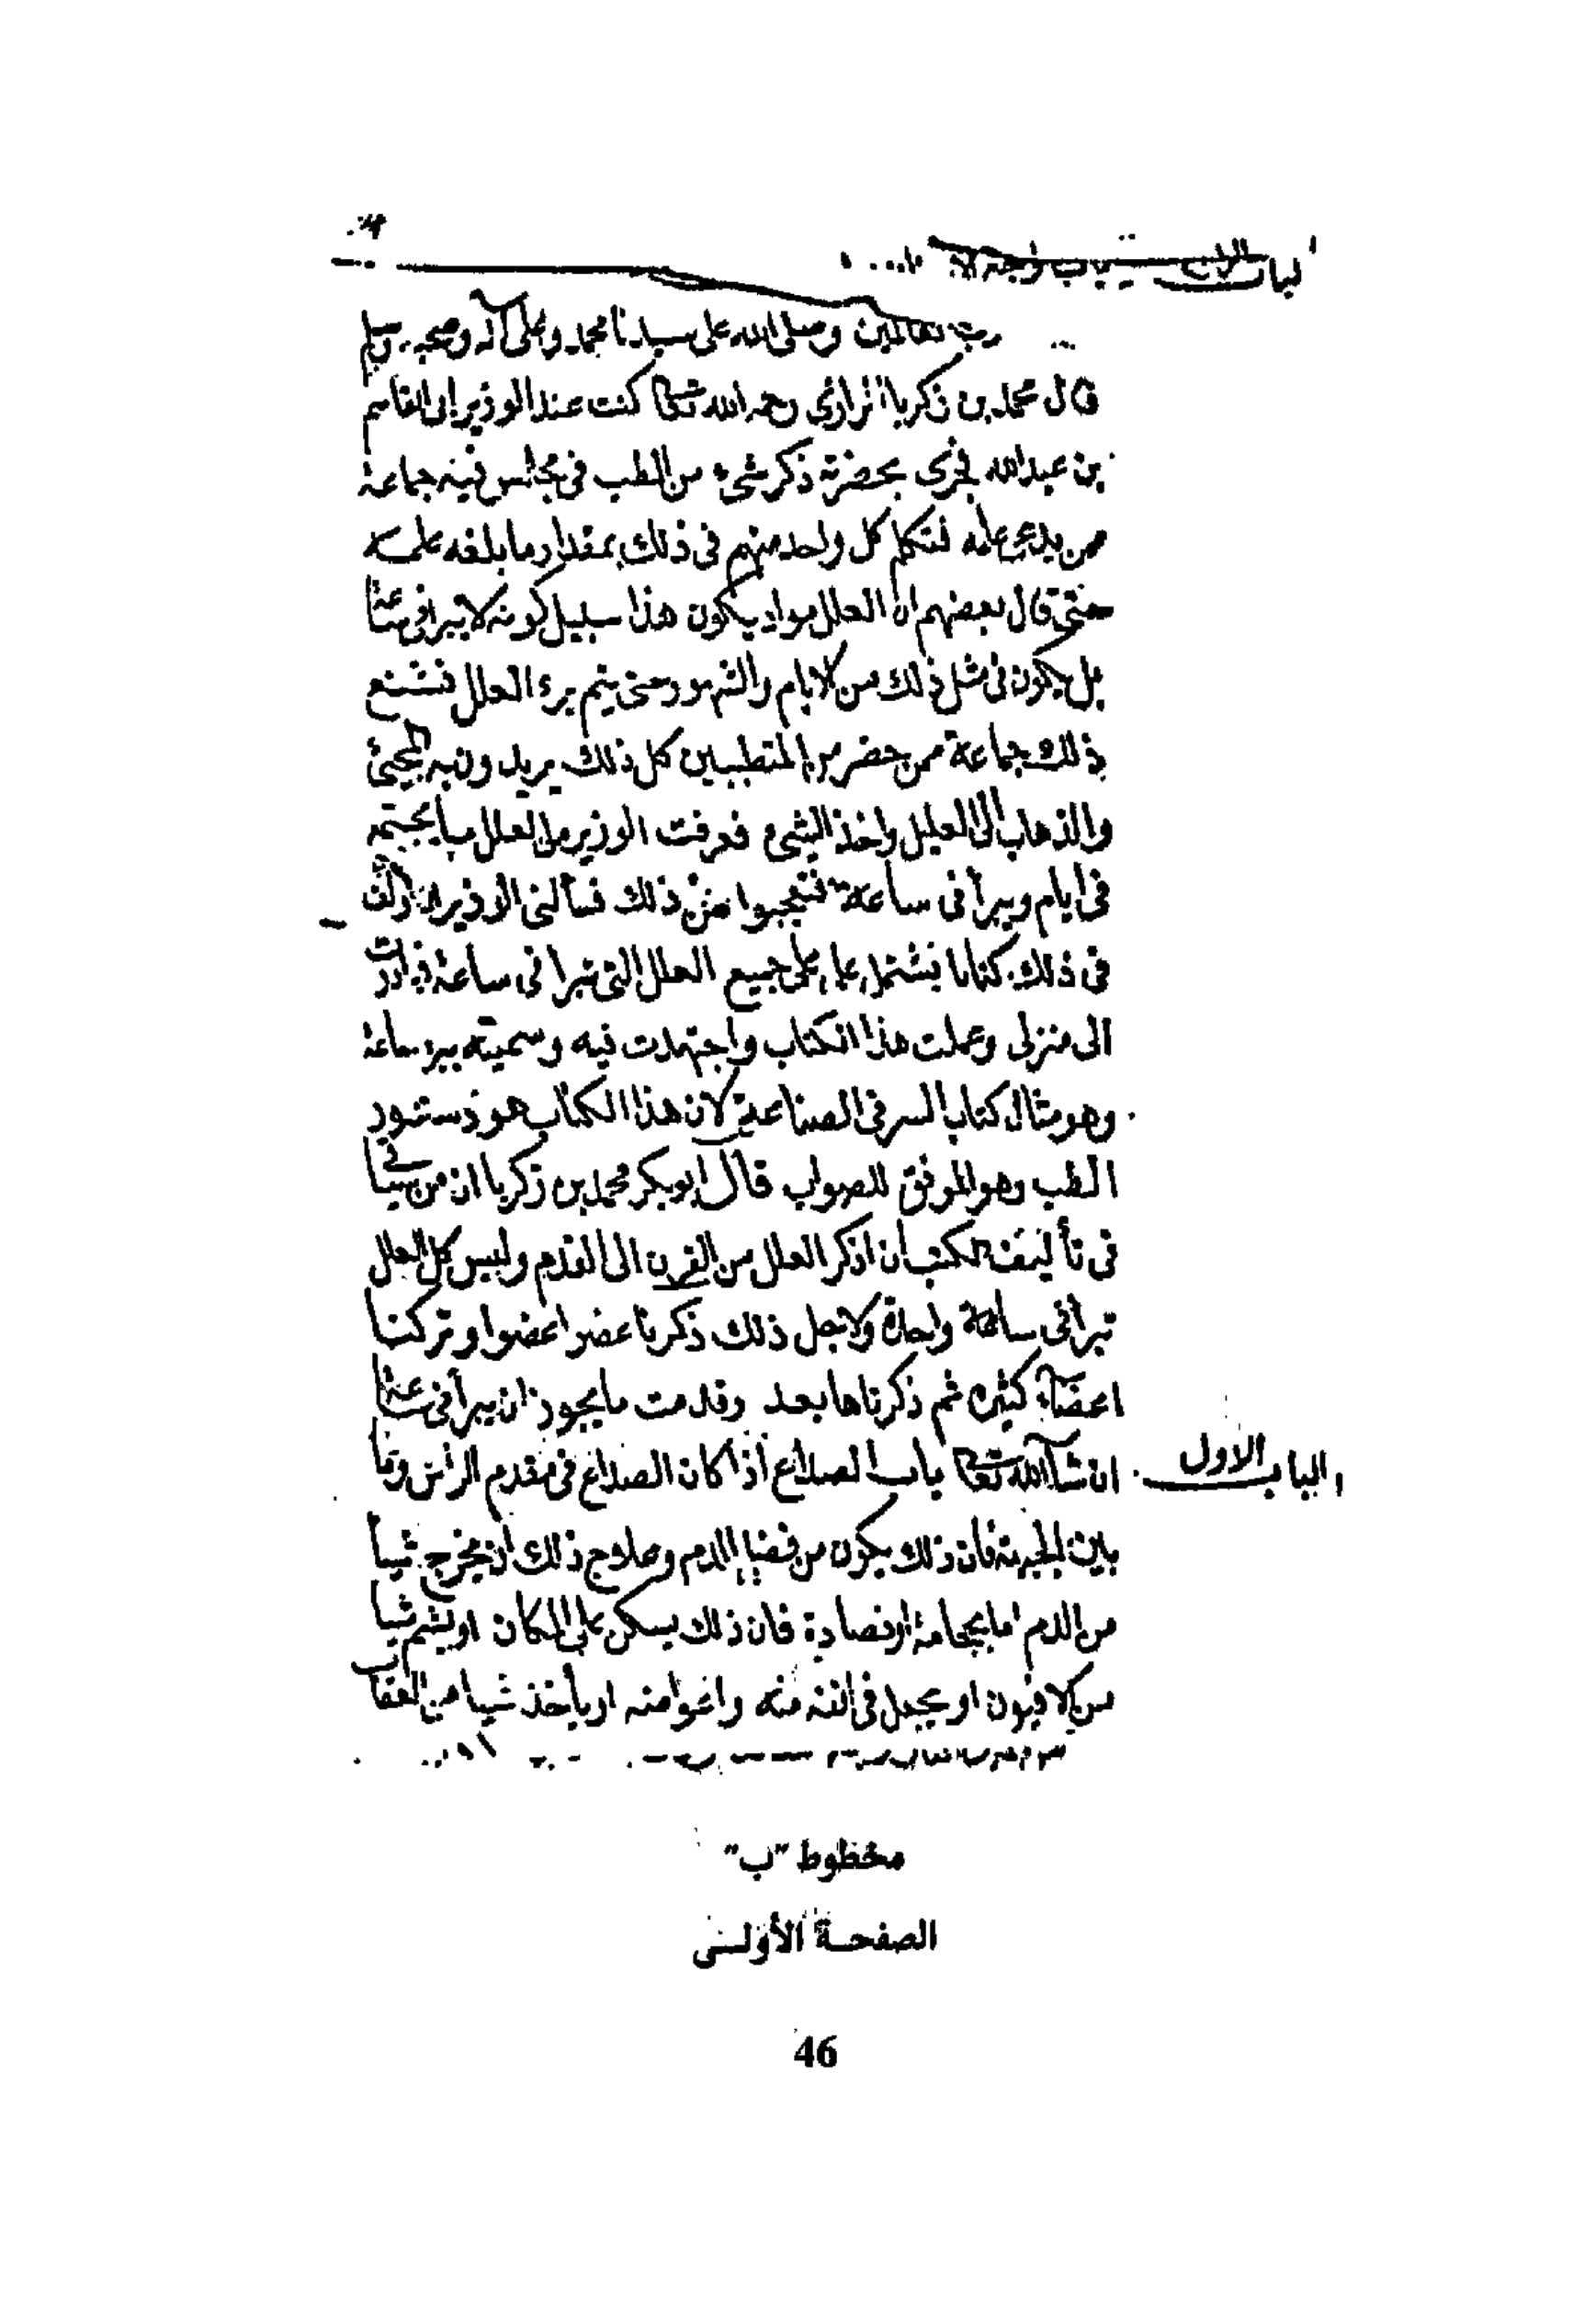 رب العالمين وصلى الله على سيدنا محمد وعلى آله وصحبه وسلم
قال محمد بن زكريا الرازى رحمه الله تعالى كنت عند الوزير ابى القاسم
بن عبدالله فجرى بحضرته ذكر شىء من الطب فى مجلس فيه جماعة
ممن يدعى علمه فتكلم كل واحد منهم فى ذلك بمقدار ما بلغه علمه
حتى قال بعضهم ان العلل مواد يكون هذا سبيل كونه لا تبرا فى ساعة
بل يكون فى مثل ذلك من الايام والشهور حتى يتم برء العلل فشنع
ذلك جماعة ممن حضر من المتطببين كل ذلك يريدون به المجئ
والذهاب الى العليل واخذ الشىء فعرفت الوزير ان من العلل ما يجتمع
فى ايام ويبرأ فى ساعة فتعجبوا من ذلك فسألنى الوزير ان اولف
فى ذلك كتابا يشتمل على جميع العلل التى تبرا فى ساعة فبادرت
الى منزلى وعملت هذا الكتاب واجتهدت فيه وسميته ببرء ساعة
وهو مثال كتاب السر فى الصناعة لان هذا الكتاب هو دستور
الطب وهو الموفق للصواب قال ابو بكر محمد بن زكريا ان من
فى تأليف الكتب ان اذكر العلل من القرن الى القدم وليس كل العلل
تبرأ فى ساعة واحدة ولاجل ذلك ذكرنا عضوا عضوا وتركنا
اعضآء كثيره ثم ذكرناها بعد وقدمت ما يجوز ان يبرأ فى ساعة
الباب الاول
ان شآء الله تعالى باب الصداع اذا كان الصداع فى مقدم الرأس وما
بين الجبهة فان ذلك يكون من فضل الدم وعلاج ذلك ان يخرج شيأ
من الدم اما بحجامة او فصادة فان ذلك يسكن على المكان او يشم شيا
من الافيون او يجعل فى انفه منه او يأخذ شيا من
مخطوط "ب"
الصفحة الأولى
46